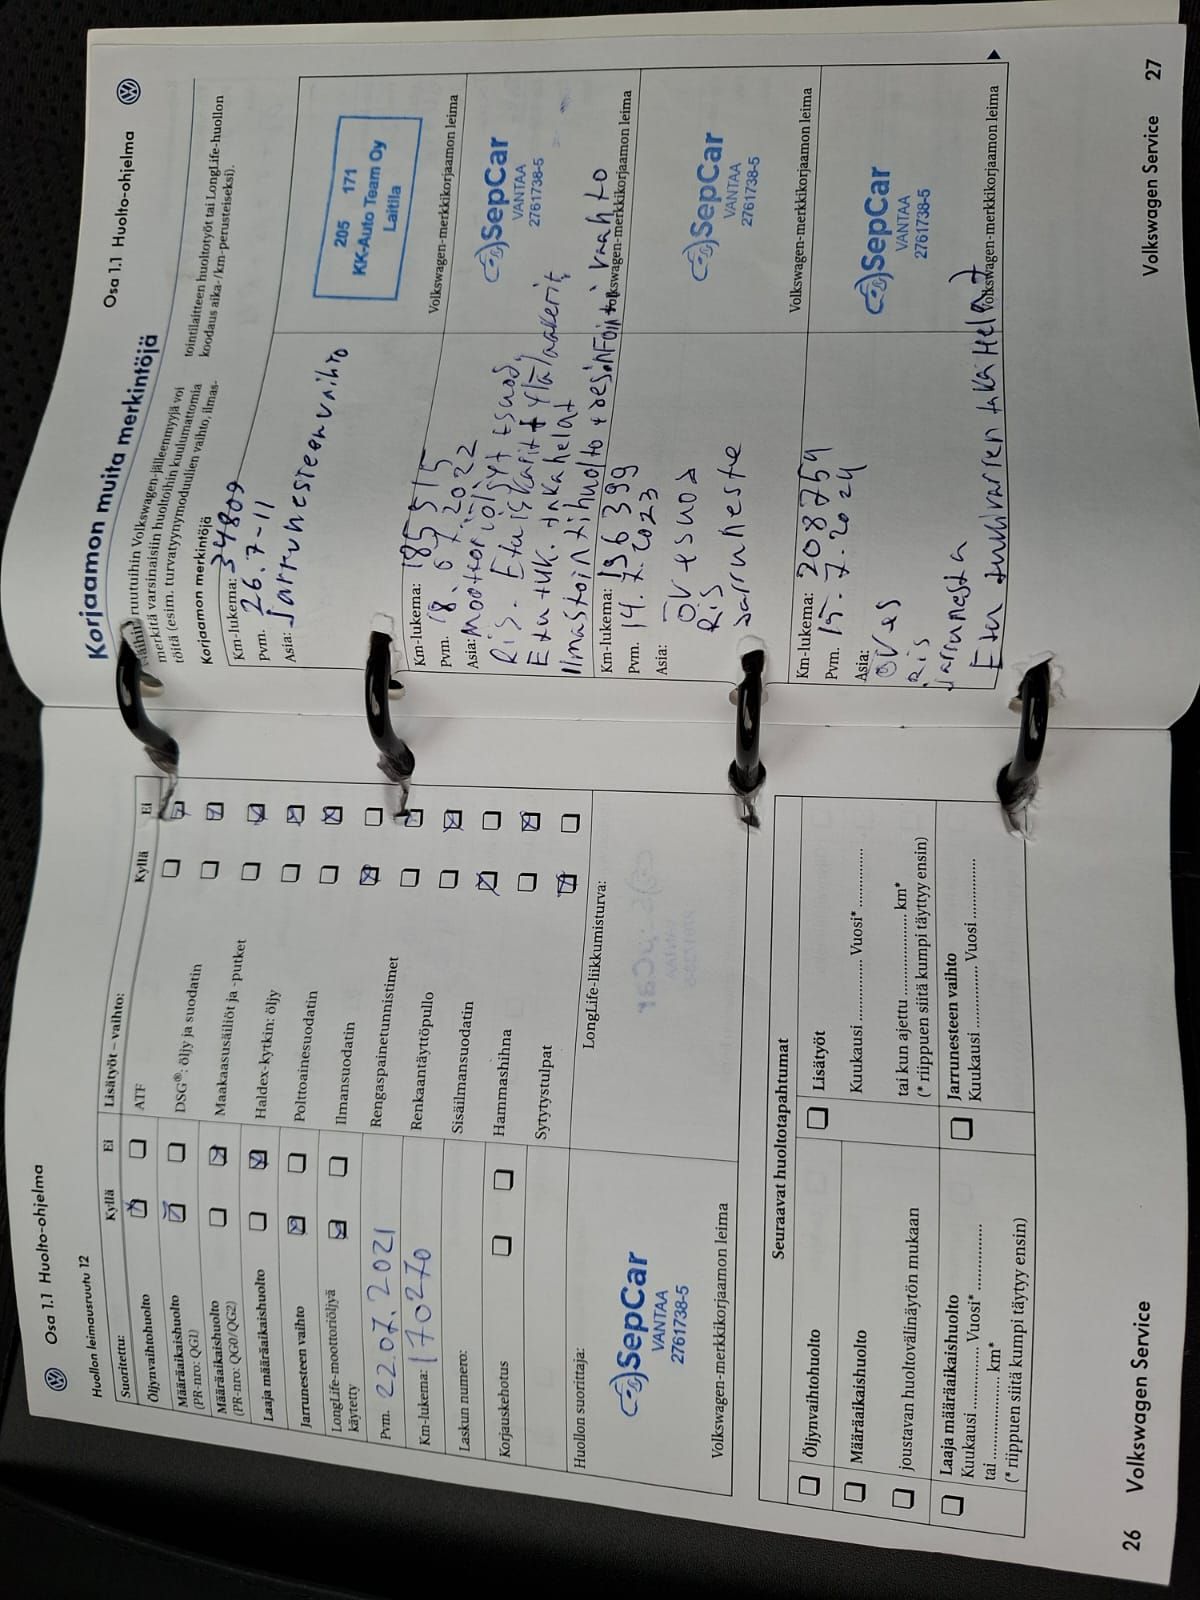 Osa 1.1 Huolto-ohjelma
Huollon leimausruutu 12
Suoritettu: Kyllä Ei
Öljynvaihtohuolto
Määräaikaishuolto
(PR-nro: QG1)
Määräaikaishuolto
(PR-nro: QG0/QG2)
Laaja määräaikaishuolto
Jarrunesteen vaihto
LongLife-moottoriöljyä
käytetty
Pvm. 22.07.2021
Km-lukema: 170270
Laskun numero:
Korjauskehotus
Lisätyöt – vaihto: Kyllä Ei
ATF
DSG®: öljy ja suodatin
Maakaasusäiliöt ja -putket
Haldex-kytkin: öljy
Polttoainesuodatin
Ilmansuodatin
Rengaspainetunnistimet
Renkaantäyttöpullo
Sisäilmansuodatin
Hammashihna
Sytytystulpat
Huollon suorittaja:
SepCar
VANTAA
2761738-5
Volkswagen-merkkikorjaamon leima
LongLife-liikkumisturva:
Seuraavat huoltotapahtumat
Öljynvaihtohuolto
Määräaikaishuolto
joustavan huoltovälinäytön mukaan
Laaja määräaikaishuolto
Kuukausi ............... Vuosi* ...............
tai ..................... km*
(* riippuen siitä kumpi täytyy ensin)
Lisätyöt
Kuukausi ............... Vuosi* ...............
tai kun ajettu ..................... km*
(* riippuen siitä kumpi täyttyy ensin)
Jarrunesteen vaihto
Kuukausi ............... Vuosi ...............
26 Volkswagen Service
Osa 1.1 Huolto-ohjelma
Korjaamon muita merkintöjä
Näihin ruuttuihin Volkswagen-jälleenmyyjä voi
merkitä varsinaisiin huoltoihin kuulumattomia
töitä (esim. turvatyynymoduulien vaihto, ilmas-
tointilaitteen huoltotyöt tai LongLife-huollon
koodaus aika-/km-perusteiseksi).
Korjaamon merkintöjä
Km-lukema: 34809
Pvm. 26.7-11
Asia: Jarrunesteenvaihto
205 171
KK-Auto Team Oy
Laitila
Volkswagen-merkkikorjaamon leima
Km-lukema: 185515
Pvm. 18.07.2022
Asia: Moottoriöljyt + suod,
Ris. Etuiskarit + ylälaakerit,
Etu tuk. takahelat
Ilmastointihuolto + desinfointi vaahto
SepCar
VANTAA
2761738-5
Volkswagen-merkkikorjaamon leima
Km-lukema: 196399
Pvm. 14.7.2023
Asia:
ÖV + suod
Ris
Jarruneste
SepCar
VANTAA
2761738-5
Volkswagen-merkkikorjaamon leima
Km-lukema: 208754
Pvm. 15.7.2024
Asia:
ÖV+S
Ris
Jarrunesta
Etu tukivarren taka Helat
SepCar
VANTAA
2761738-5
Volkswagen-merkkikorjaamon leima
Volkswagen Service 27